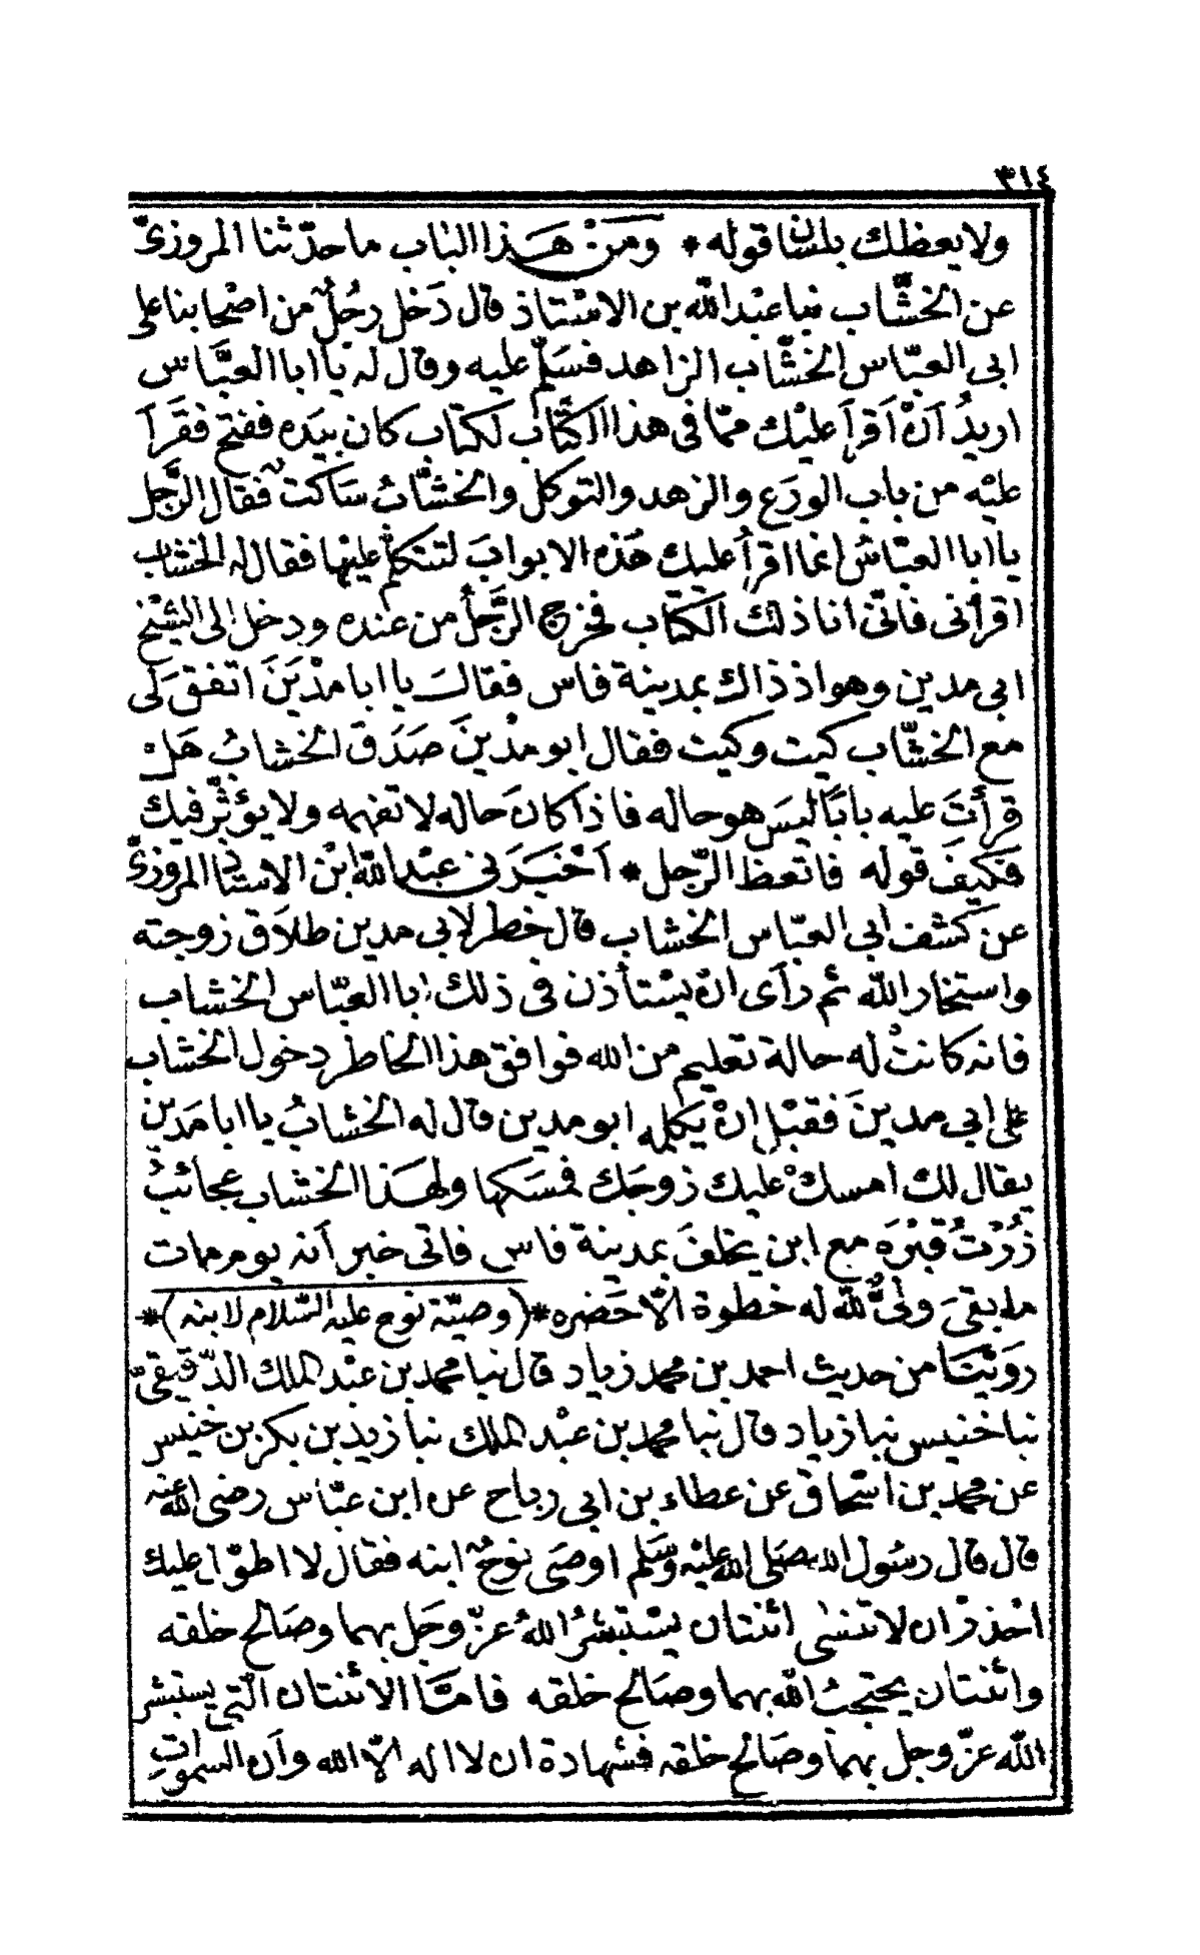 ٣١٤
ولا يعظك بلسان قوله * ومن هذا الباب ما حدّثنا المروزىّ
عن الخشّاب نبا عبد الله بن الاستاذ قال دَخل رجُلٌ من اصحابنا على
ابى العبّاس الخشّاب الزاهد فسَلّم عليه وقال له يا ابا العبَّاس
اريدُ اَنْ اَقرأَ عليْك ممّا فى هذا الكتَّاب لكتاب كان بيَده ففتح فقَرأَ
عليْه من باب الورَع والزهد والتوكل والخشّابُ سَاكتٌ فقال الرَّجل
يا ابا العبّاس انما اقرأُ عليك هَذه الابوابَ لتتكلم عليْها فقال له الخشاب
اقرأنى فانّى انا ذلك الكتاب فخرج الرَّجُلُ من عنده ودخل الى الشيْخ
ابى مدين وهو اذ ذاك بمدينة فاس فقالَ يا ابا مدْيَنَ اتفق لَى
مع الخشّاب كيت وكيت فقال ابو مدْينَ صَدَقَ الخشابُ هَل
قرأتَ عليه بابًا ليسَ هو حاله فاذا كانَ حاله لا تفهمه ولا يؤثّر فيك
فكيفَ قوله فاتعظ الرّجل * اَخْبَرَنى عبْد الله ابْن الاستاذ المروزىّ
عن كشف ابى العبّاس الخشاب قال خطر لابى مدين طلاَق زوجته
واستخار الله ثم رَأَى انْ يسْتأذن فى ذلك ابا العبّاس الخشاب
فانه كانتْ له حالة تعليم من الله فوافق هذا الخاطر دخول الخشاب
على ابى مدينَ فقبْل انْ يكلمه ابو مدين قال له الخشابُ يا ابا مَدين
يقال لك امسكْ عليك زوجك فمسَكها ولهَذا الخشاب عجائبُ
زُرْتُ قبْرَه مع ابن يخلفَ بمدينة فاس فاتى خبر اَنه يوم مات
ما بقىَ ولىٌّ لله له خطوة الاّ حَضره * (وصيّة نوح عليه السّلام لابنه) *
روَيْنَا من حديث احمد بن محمد زياد قال نبا محمد بن عبْد الملك الدّقيقىّ
نبا خنيس نبا زياد قال نبا محمد بن عبْد الملك نبا زيد بن بكر بن خنيس
عن محمد بن اسْحاق عن عطاء بن ابى رباح عن ابن عبّاس رضى الله عنه
قال قال رسُول الله صَلى الله عليْه وسَلم اوصَى نوحٌ ابنه فقال لا اطوّل عليك
اجْدرْ ان لا تنسٰى اثنتان يسْتبشرُ اللهُ عزّ وجَل بهما وصَالح خلقه
واثنتان يحتجبُ الله بهما وصَالح خلقه فامَّا الاثنتان التى يستبشر
الله عزّ وجل بهما وصَالح خلقه فشهادة ان لا اله الاّ الله واَن السموَاتِ